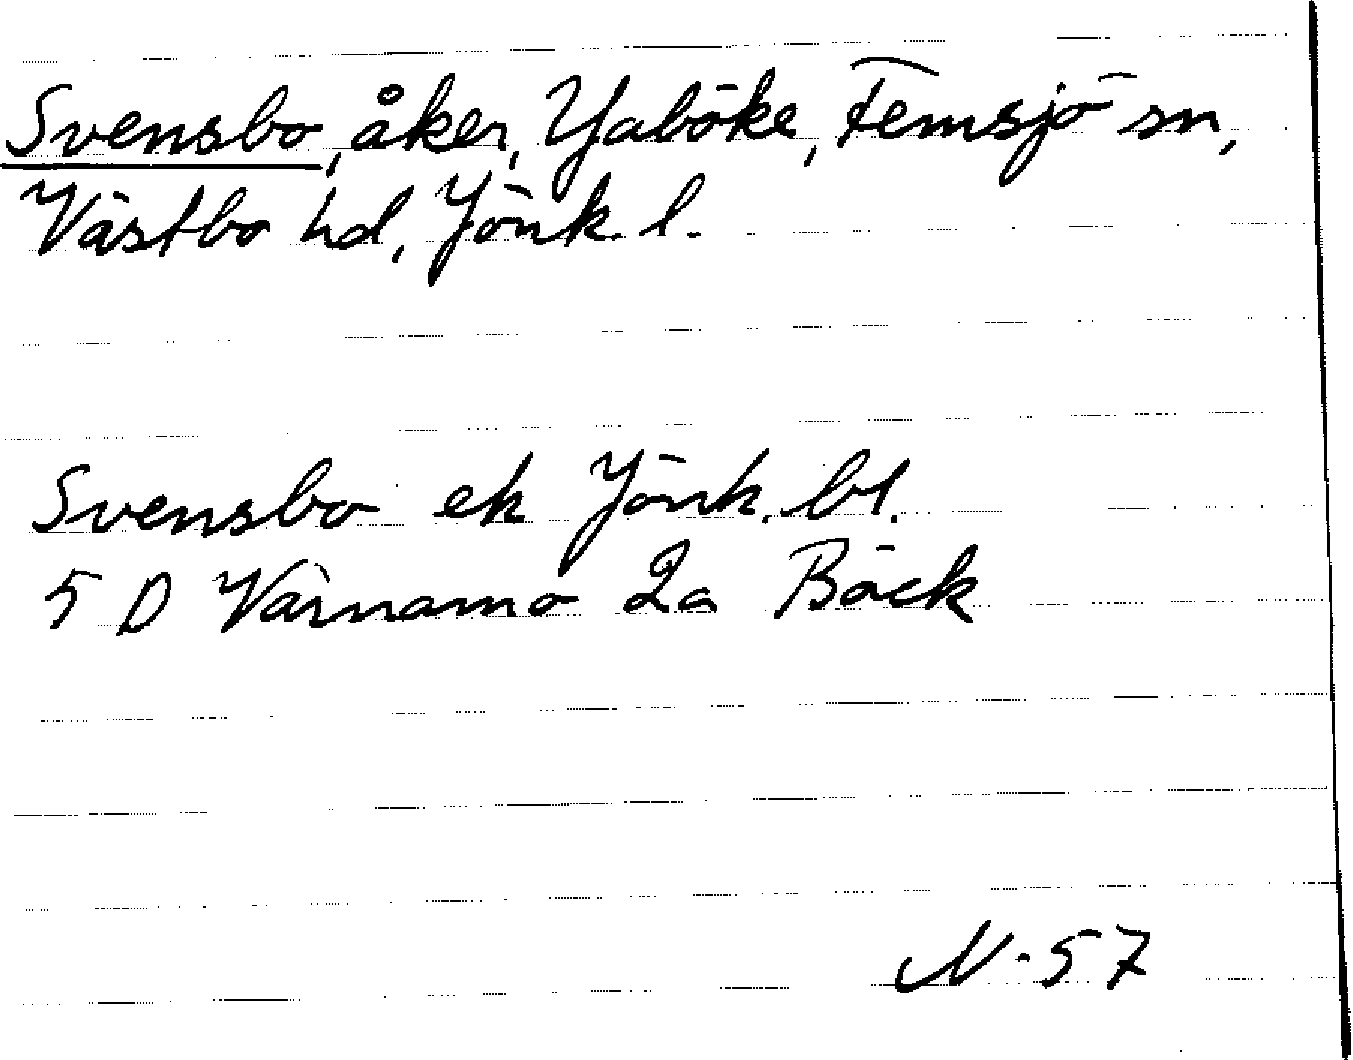 Svensbo, åker, Yaböke, Femsjö sn,
Västbo hd, Jönk. l.
Svensbo ek Jönk. bl.
5 D Värnamo 2a Bäck
N-57